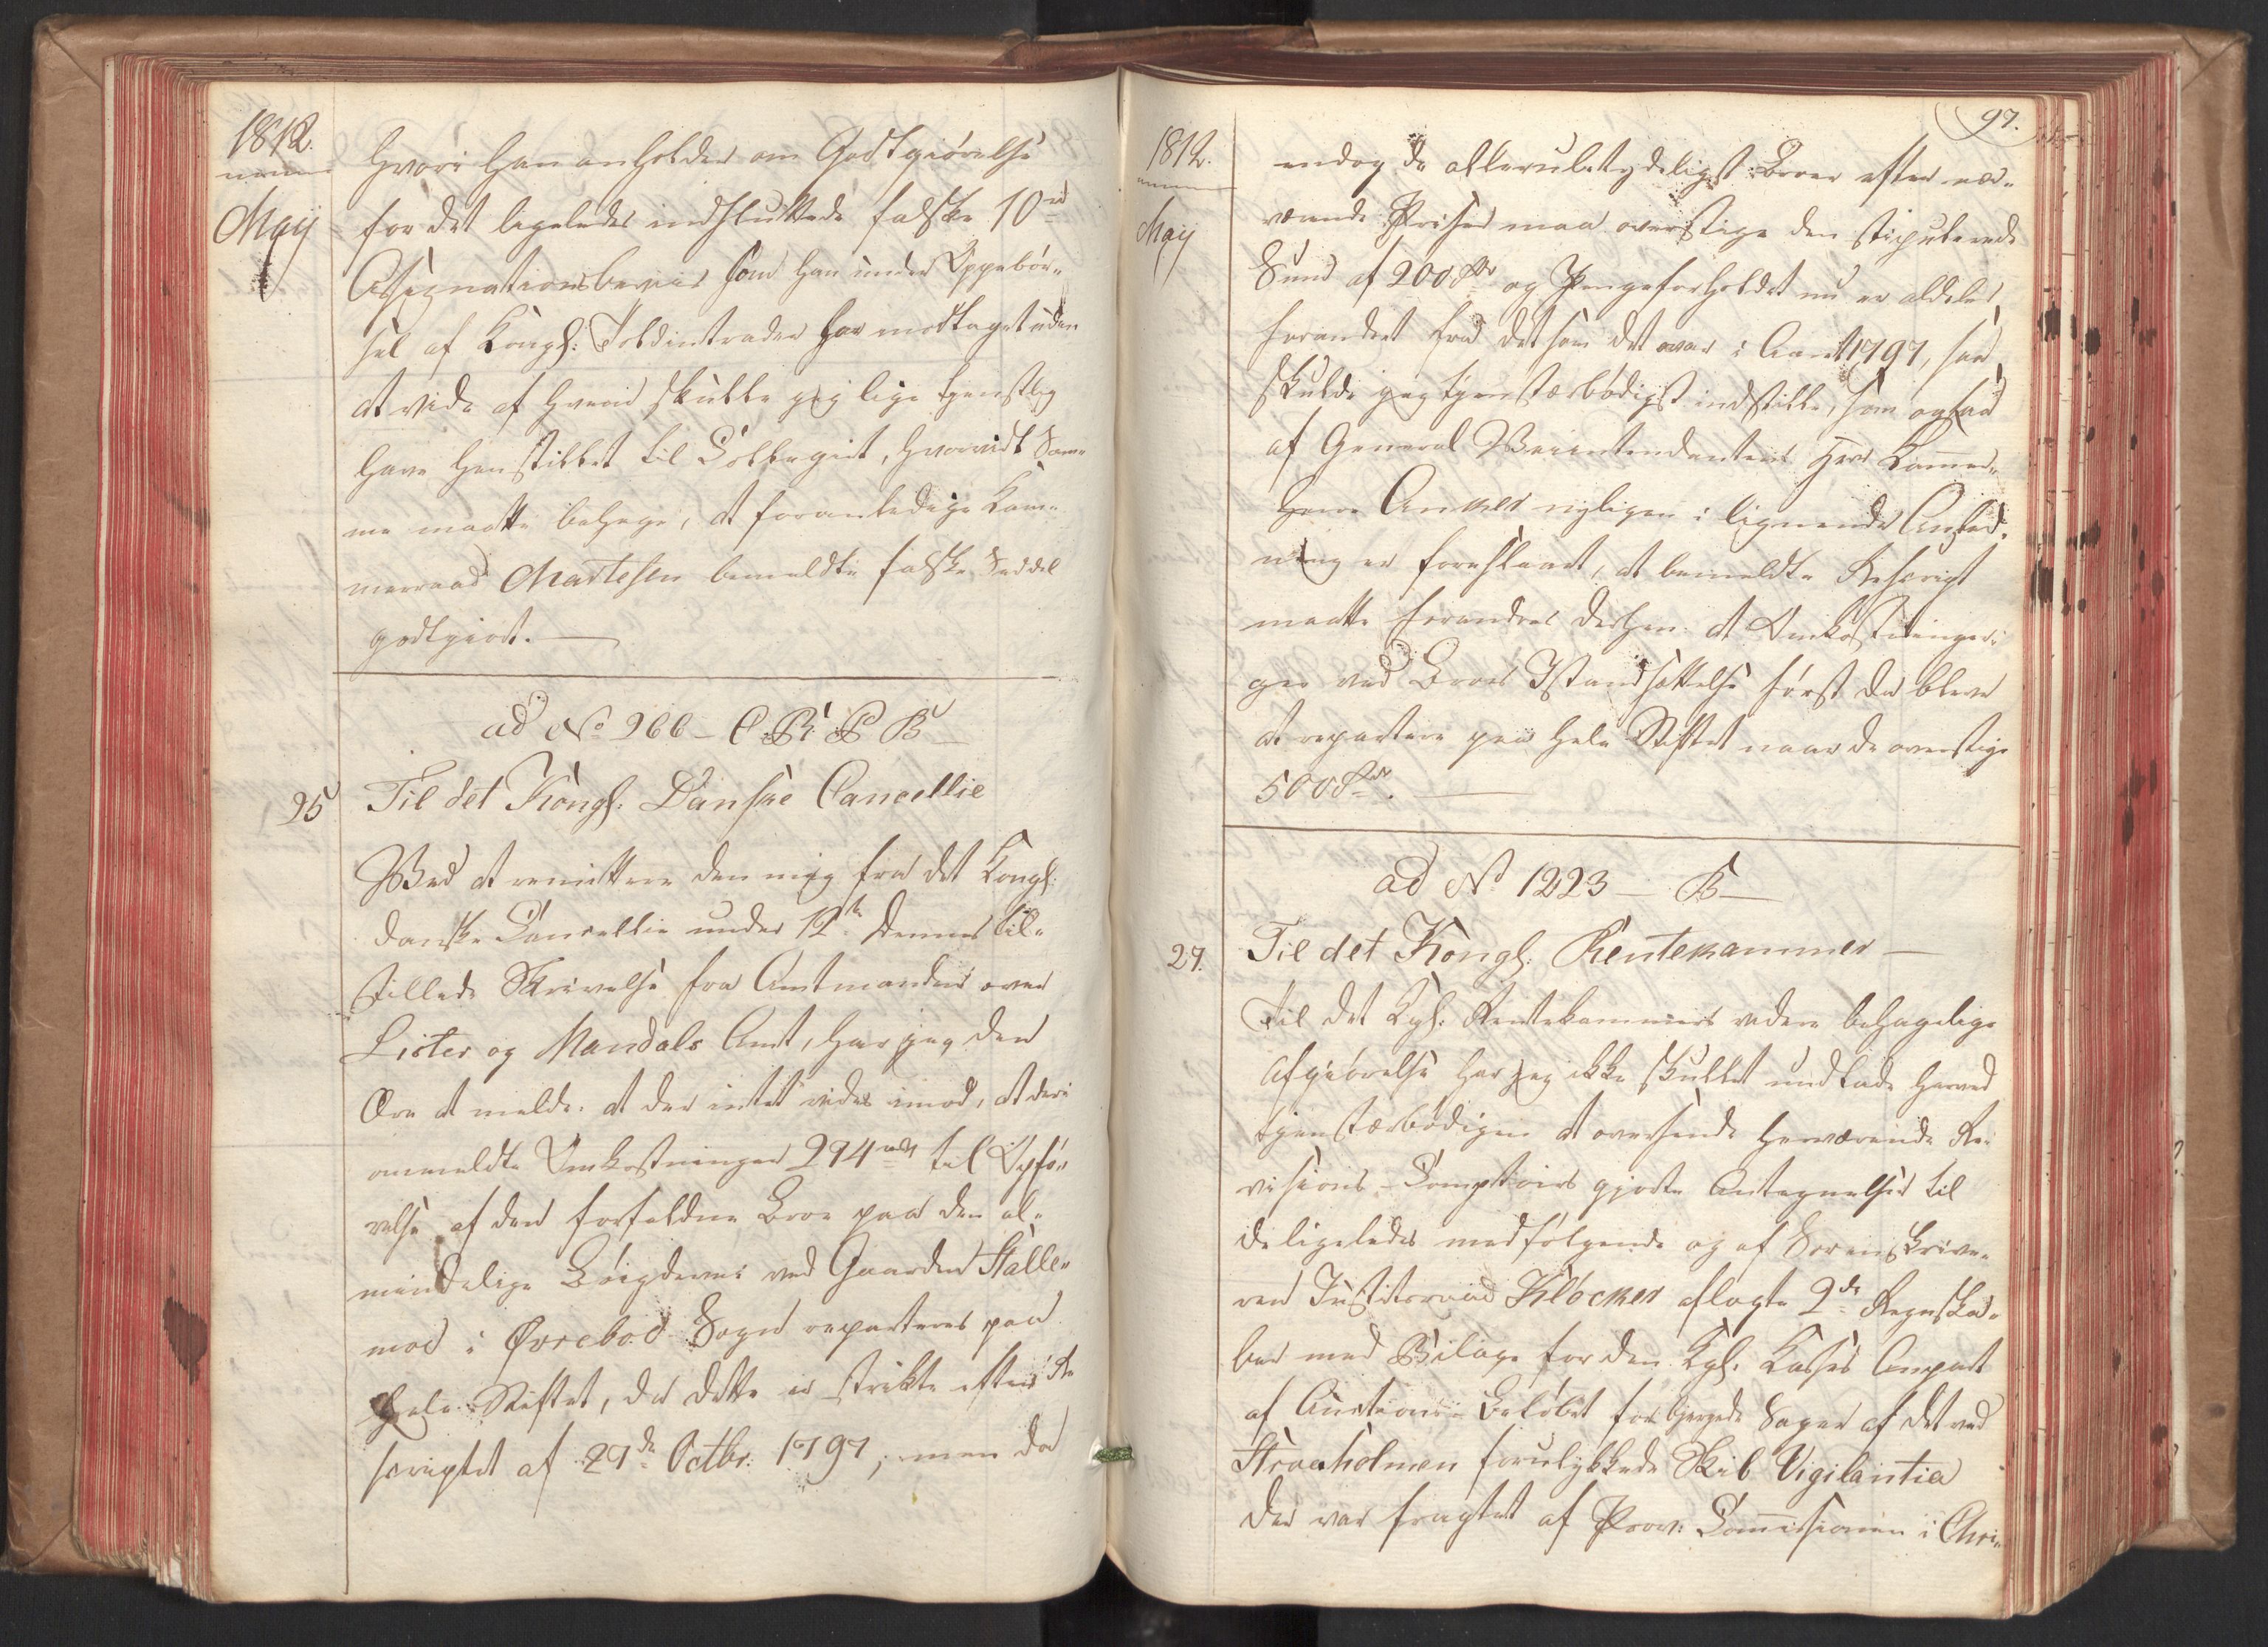 1812.
May
hvori han anholder om Godtgiørelse
for det ligeledes indsluttede falske 10 rd
Assignationsbeviis som han under Oppebør-
sel af Kongl: Toldintrader har modtaget uden
at vide af hvem skulle jeg lige tienstlig
have henstillet til Collegiet, hvorvidt Sam-
me maatte behage, at foranledige Kam-
merraad Martesen bemeldte falske Seddel
godtgiort.
ad No 966 - C. R. P. B
25 Til det Kongl. Danske Cancellie
Ved at remittere den mig fra det Kongl.
danske Cancellie under 12te dennes til-
stillede Skrivelse fra Amtmanden over
Lister og Mandals Amt, har jeg den
Ære at melde: at der intet vides imod, at deri
ommeldte Omkostninger 294 rd til Opfø-
relse af den forfaldne Broe paa den al-
mindelige Bøigdevei ved Gaarden Stalle-
mod i Øvrebod Sogn reparteres paa
hele Stiftet, da dette er strikte efter Re-
scriptet af 27de Octbr. 1797; men da
97.
1812.
May
endog de allerubetydeligst Broer efter nær-
værende Priser maa overstige den stipulerede
Sum af 200 Rdr og Pengeforholdet nu er aldeles
forandret fra det som det var i Aaret 1797, saa
skulde jeg tienstærbødigst indstille, som ogsaa
af General Veiintendanten Herr Kammer-
herre Anker nyligen i lignende Anled-
ning er foreslaaet, at bemeldte Rescript
maatte forandres derhen: at Omkostninger-
ger ved Broers Istandsættelse først da bleve
at repartere paa hele Stiftet naar de overstige
500 Rdr.
ad No 1223 - B
27. Til det Kongl. Rentekammer
Til det Kgl. Rentekammers videre behagelige
Afgiørelse har jeg ikke skullet undlade herved
tienstærbødigen at oversende herværende Re-
visions-Comptoirs gjorte Antegnelser til
de ligeledes medfølgende og af Sorenskrive-
ren Justitsraad Kløcker aflagte 2de Regnska-
ber med Bilage for den Kgl. Kasses Anpart
af Auctions-Beløbet for biergede Sager af det ved
Straaholmen forulykkede Skib Vigilantia
der var fragtet af Prov: Commissionen i Chri-